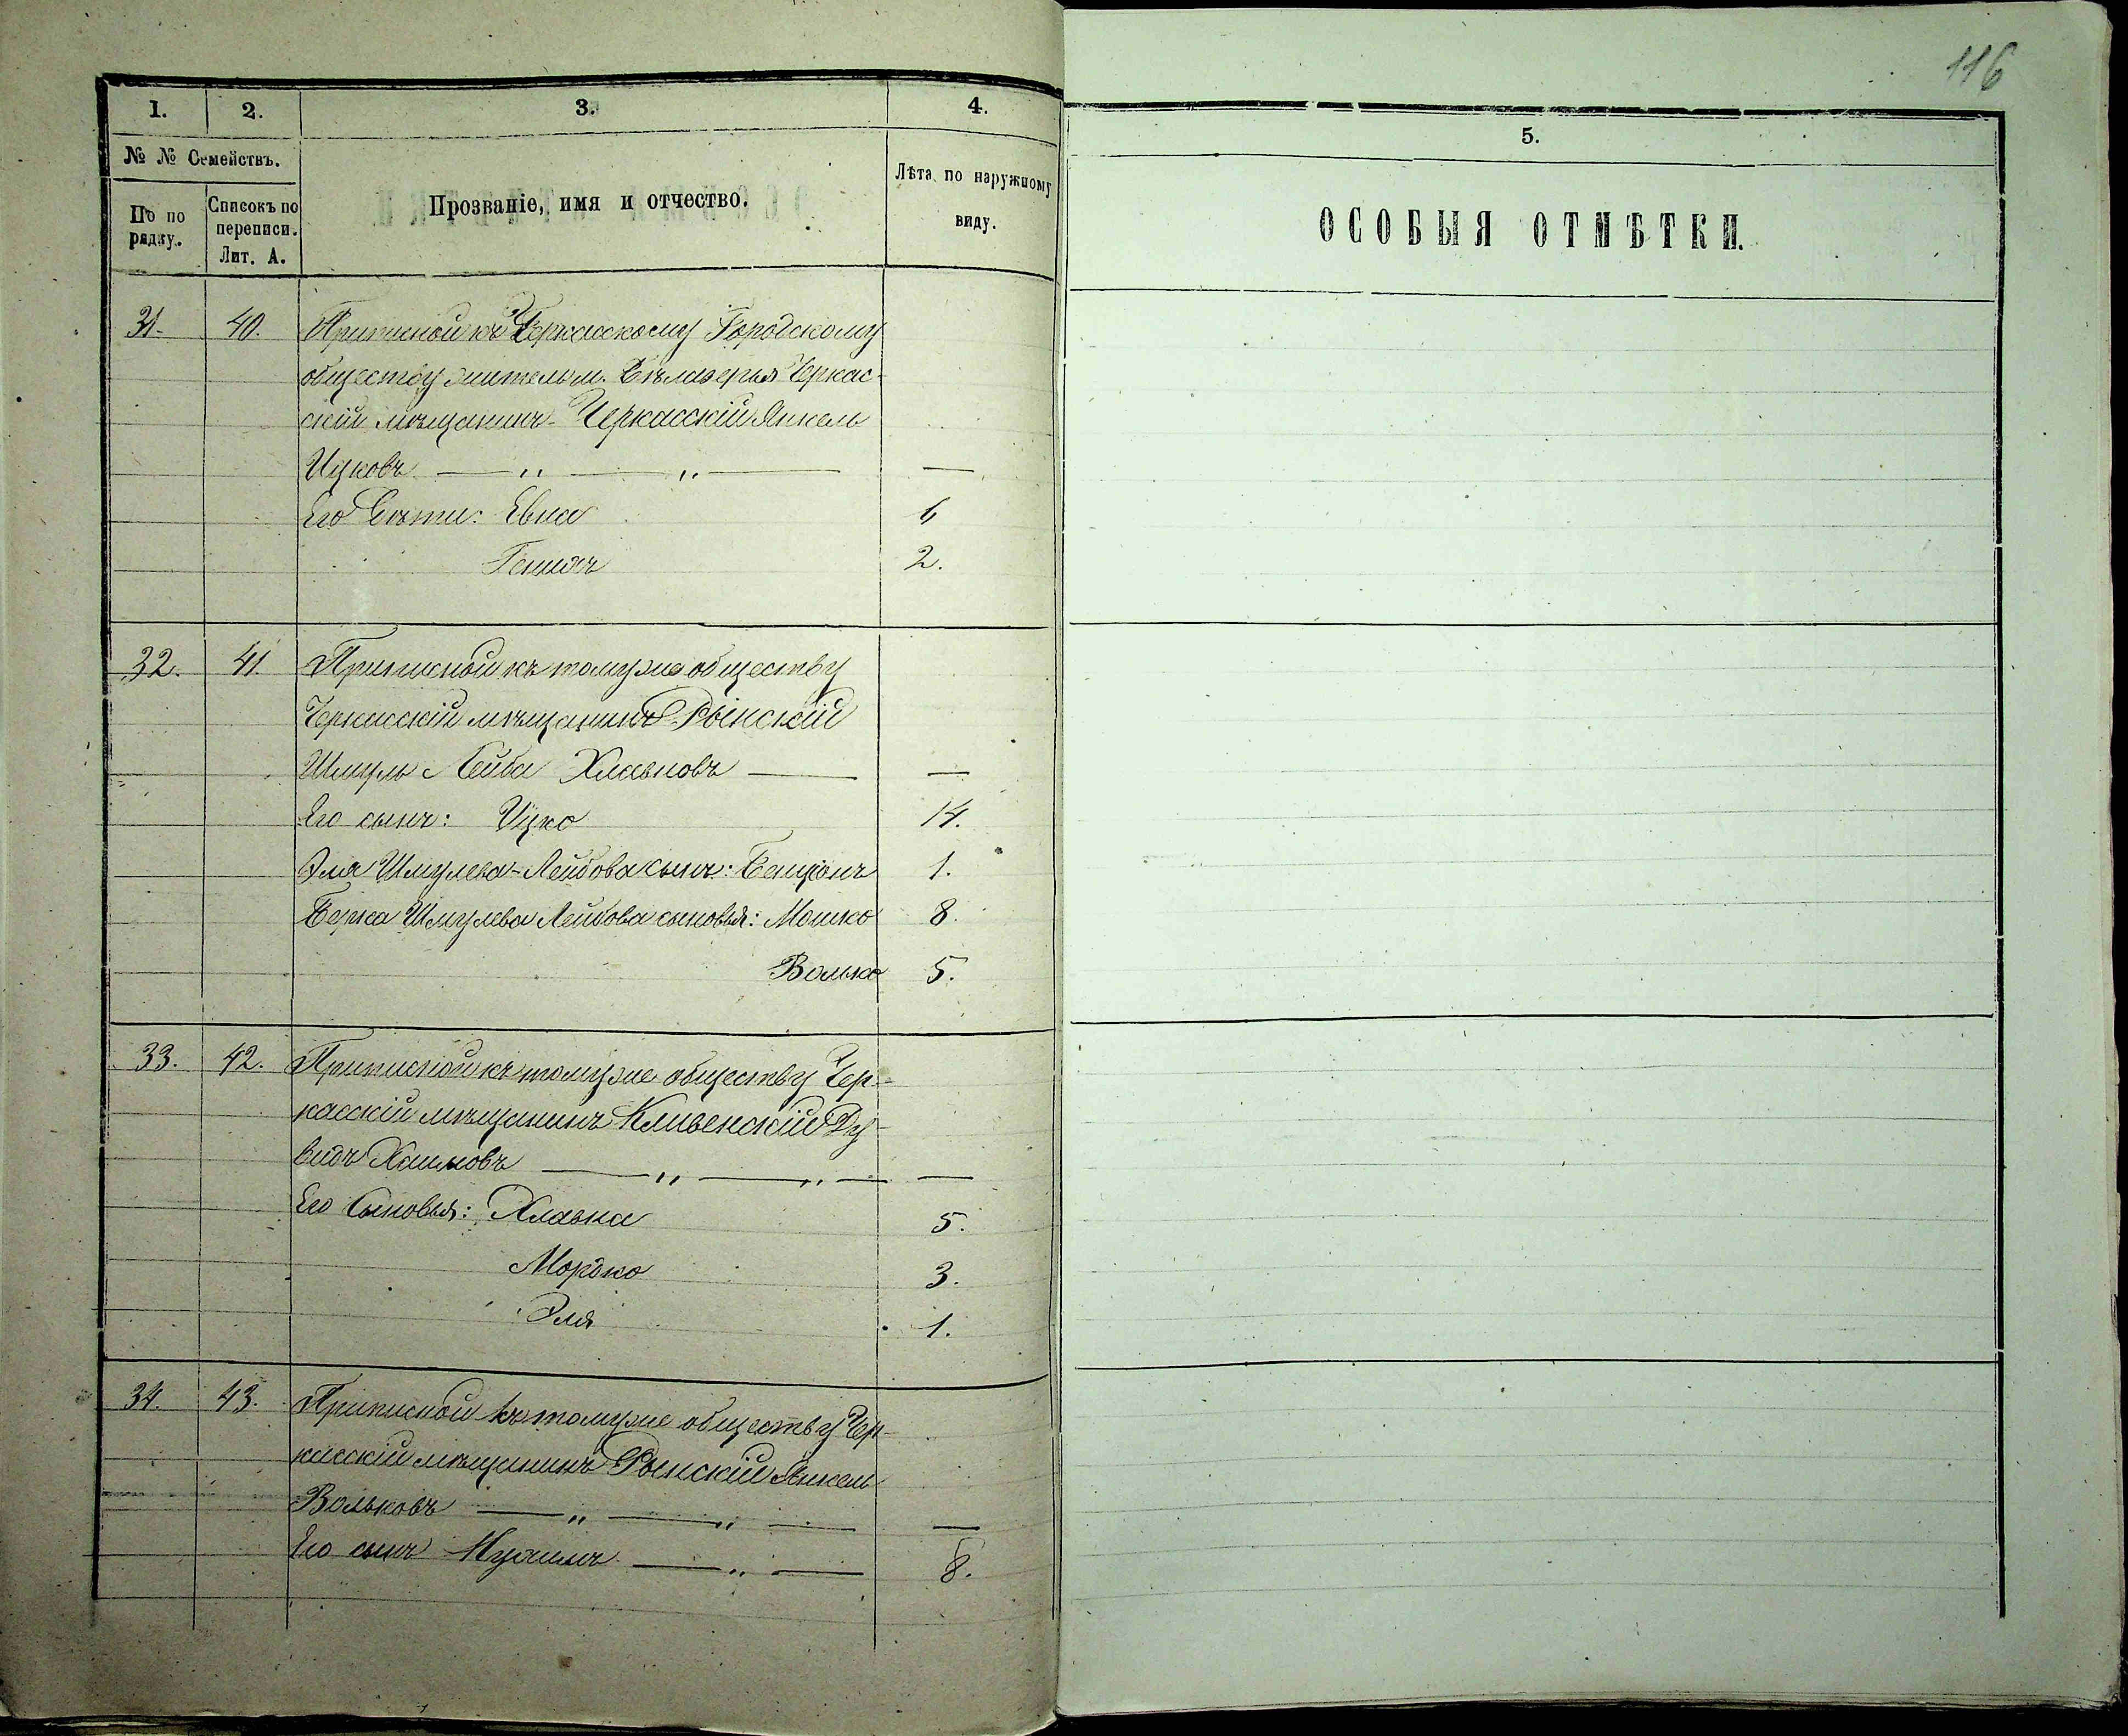 116
1. 2. 3. 4. 5.
№ № Семействъ.
По по рядку.
Списокъ по переписи. Лит. А.
Прозваніе, имя и отчество.
Лѣта по наружному виду.
ОСОБЫЯ ОТМѢТКИ.
31. 40. Приписной къ Черкасскому Городскому
обществу житель м. Бѣлозерья Черкас-
скій мѣщанинъ Черкасскій Янкель
Ицковъ — „ — „ — —
Его Дѣти: Евна 6
2.
32. 41. Приписной къ томуже обществу
Черкасскій мѣщанинъ Рынскій
Шмуль Лейба Хлавновъ — —
Его сынъ: Ицко 14.
Эля Шмулева-Лейбова сынъ: Бенціонъ 1.
Берка Шмулева Лейбова сыновья: Мошко 8.
Волько 5.
33. 42. Приписной къ томуже обществу Чер-
касскій мѣщанинъ Ду-
видъ Хаимовъ — „ — „ — —
Его Сыновья: Хлавна 5.
Мордко 3.
Эля 1.
34. 43. Приписной къ томуже обществу Чер-
касскій мѣщанинъ Рынскій Янкель
Вольковъ — „ — „ — —
Его сынъ Нухимъ — „ — 8.